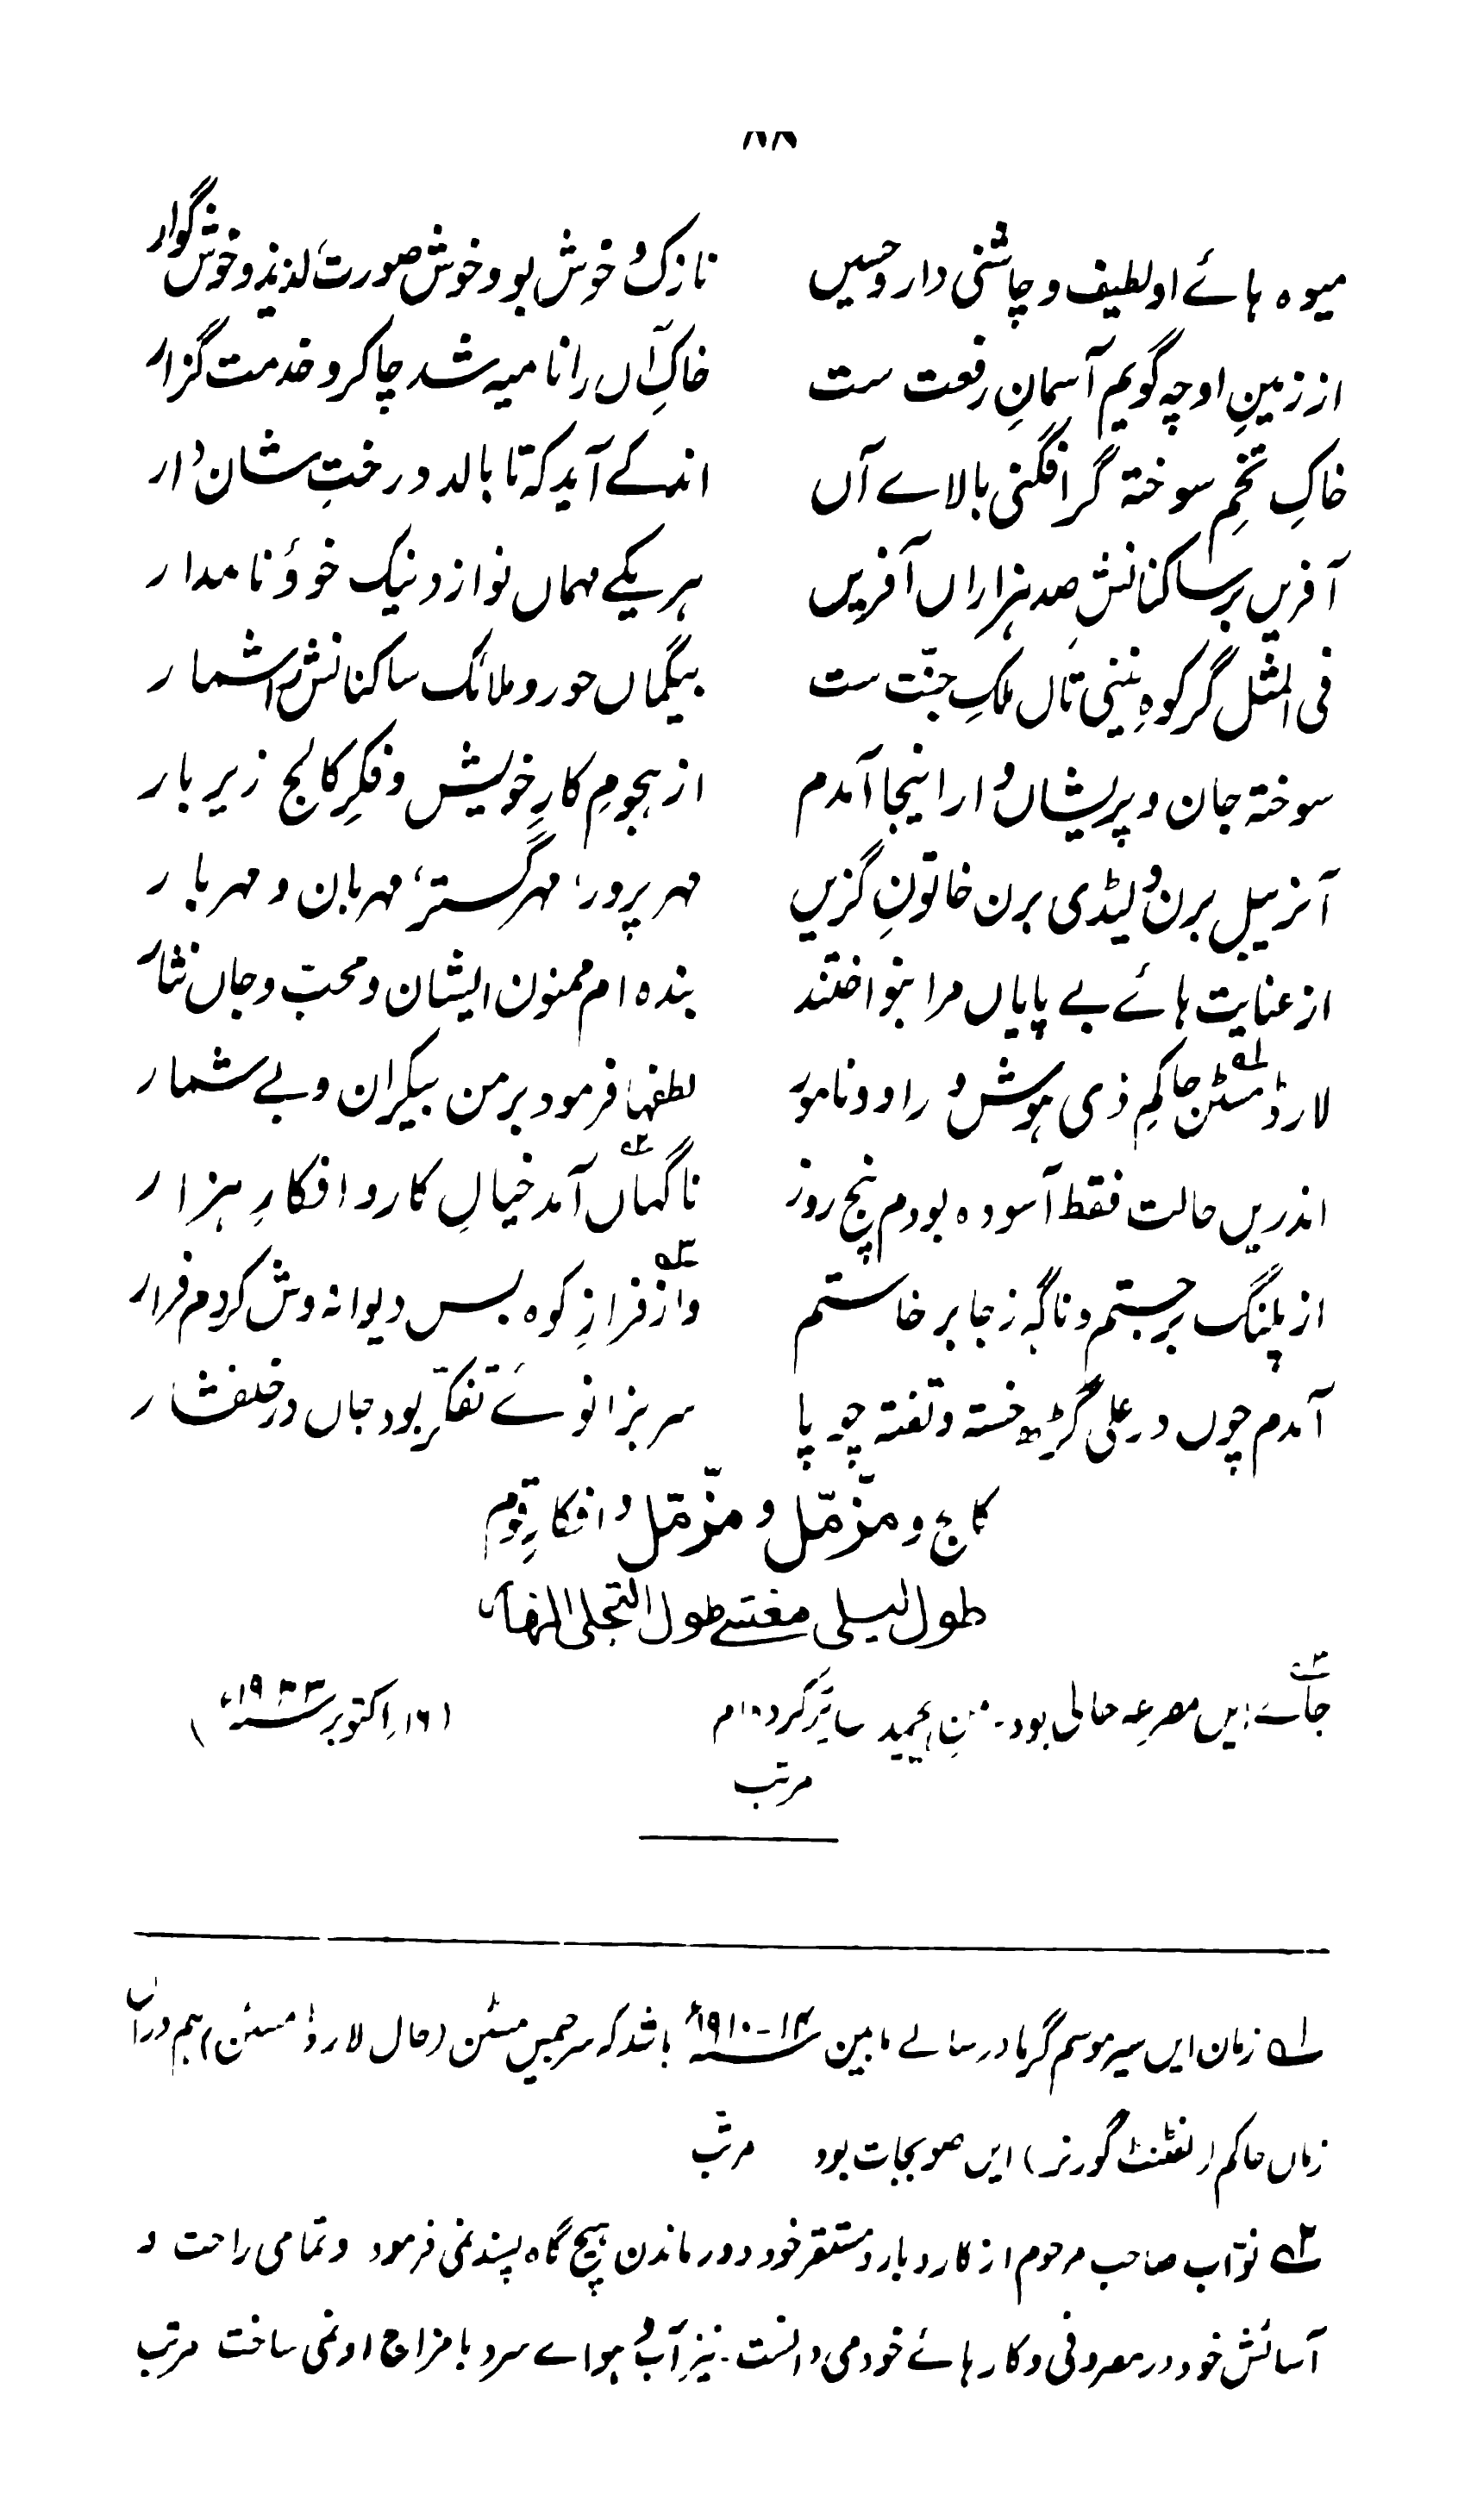 ۸۸
میوہ ہائے او لطیف و چاشنی دار و حسیں نازک و خوش بو و خوش صورت لذیذ و خوش گوار
از زمینِ او چہ گویم آسمانِ رفعت ست خاکِ آں را نامیہ شد چاکر و خدمت گزار
خاکِ تخمِ سوختہ گر افگنی بالاے آں آید کہ تا بالد درختِ شان دار
آفریں بر ساکنانش صد ہزاراں آفریں ہر یکے مہماں نواز و نیک خو و نامدار
فی المثل گر کوہِ نینی تال ملکِ جنّت ست بیگماں حور و ملائک ساکنانش را شمار
سوختہ جان و پریشاں وار اینجا آمدم از ہجومِ کارِ خویش و فکرِ کالج زیر بار
آنریبل برن و لیڈی برن خاتونِ گزیں مہر پرور، مہر گستر، مہربان و مہر بار
از عنایت ہائے بے پایاں مرا بنواختند بندہ ام ممنون ایشان و محب و جاں نثار
لارڈ مسٹن حاکمِ ذی ہوش و راد و نامور لطفہا فرمود بر من بیکران و بے شمار
اندریں حالت فقط آسودہ بودم پنج روز ناگہاں آمد خیالِ کار و افکارِ ہزار
از پلنگ برجستم و ناگہ ز جا برخاستم واز فرازِ کوہ بس دیوانہ وش کردم فرار
آمدم چوں در علی گڑھ خستہ و تفتہ چو پا سر بزانوے تفکر بود جاں در خلفشار
کالج و مزّمّل و مزّمّل و افکارِ قوم
طول لیلی مغنی طول
جاے ایں مصرعہ خالی بود۔ سایر کردہ ام (۱۶؍ اکتوبر ۱۹۳۳ء)
مرتب
۱؎ زمان ایں سیر موسم گرما در سالے مابین ۱۴-۱۹۱۰ء باشد کہ سر جیمس مسٹن (حال لارڈ مسٹن) ہم دراں
زماں حاکم (لفٹننٹ گورنر) ایں صوبجات بود مرتب
۲؎ نوّاب صاحب مرحوم از کاروبار و مستقر خود دور ماندن ہیچ گاہ پسند نمی فرمود و تمامی راحت و
آسائش خود در مصروفی و کارہائے خود می دانست۔ نیز آب و ہواے سرد با مزاج او نمی ساخت مرتب